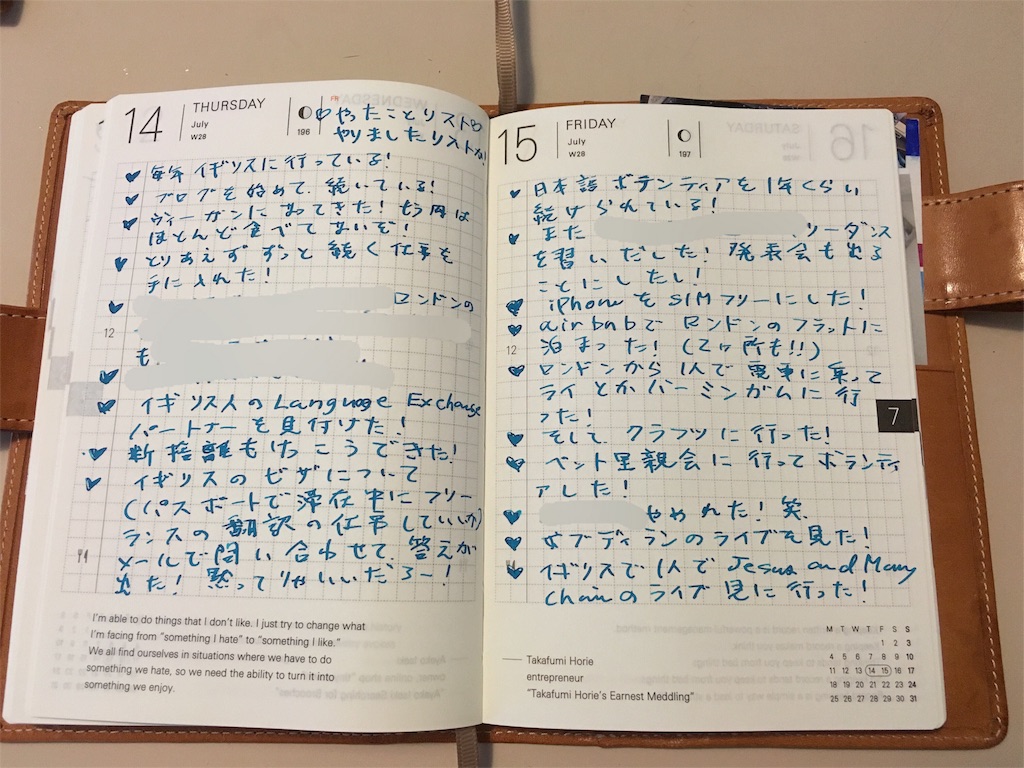 14
THURSDAY
July
W28
196
やったことリスト
やりましたリストか!
毎年 イギリスに行っている!
ブログを始めて、続いている!
ヴィーガンになってきた! もう肉は
ほとんど食べてないぞ!
とりあえず ずっと 続く仕事を
手に入れた!
ロンドンの
12
も
イギリス人の Language Exchange
パートナーを見付けた!
断捨離もけっこうできた!
イギリスのビザについて
(パスポートで滞在中にフリー
ランスの翻訳の仕事していいか)
メールで問い合わせて、答えが
出た! 黙ってりゃいいだろー!
I'm able to do things that I don't like. I just try to change what
I'm facing from "something I hate" to "something I like."
We all find ourselves in situations where we have to do
something we hate, so we need the ability to turn it into
something we enjoy.
15
FRIDAY
July
W28
197
日本語 ボランティアを 1年くらい
続けられている!
また リーダンス
を習いだした! 発表会も出る
ことにしたし!
iPhoneをSIMフリーにした!
airbnbで ロンドンのフラットに
12
泊まった! (2ヶ所も!!)
ロンドンから 1人で 電車に乗って
ライとかバーミンガムに行
った!
そして、クラフツに行った!
ペット里親会に行ってボランティ
アした!
やめれた! 笑
ボブディランのライブを見た!
イギリスで1人で Jesus and Mary
Chainのライブ見に行った!
7
Takafumi Horie
entrepreneur
"Takafumi Horie's Earnest Meddling"
M T W T F S S
1 2 3
4 5 6 7 8 9 10
11 12 13 14 15 16 17
18 19 20 21 22 23 24
25 26 27 28 29 30 31